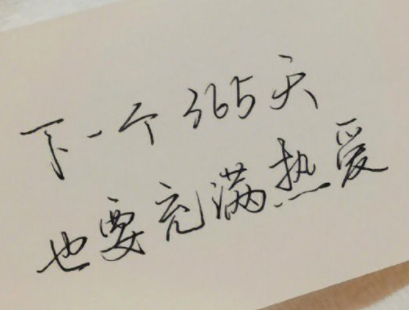 下一个365天
也要充满热爱